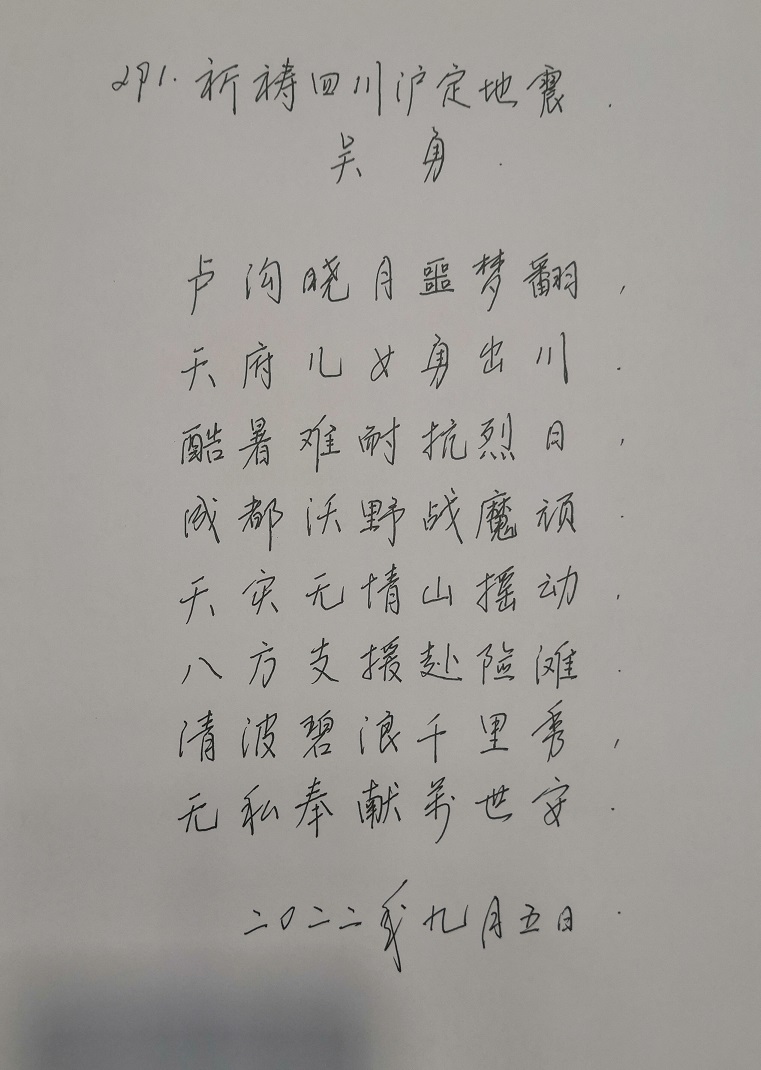 291.祈祷四川沪定地震.
吴勇.
卢沟晓月噩梦翻,
天府儿女勇出川.
酷暑难耐抗烈日,
成都沃野战魔顽.
天灾无情山摇动,
八方支援赴险滩.
清波碧浪千里秀,
无私奉献万世安.
二0二二年九月五日.